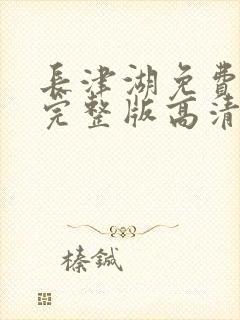 長津湖免費
完整版高清
榛鋮